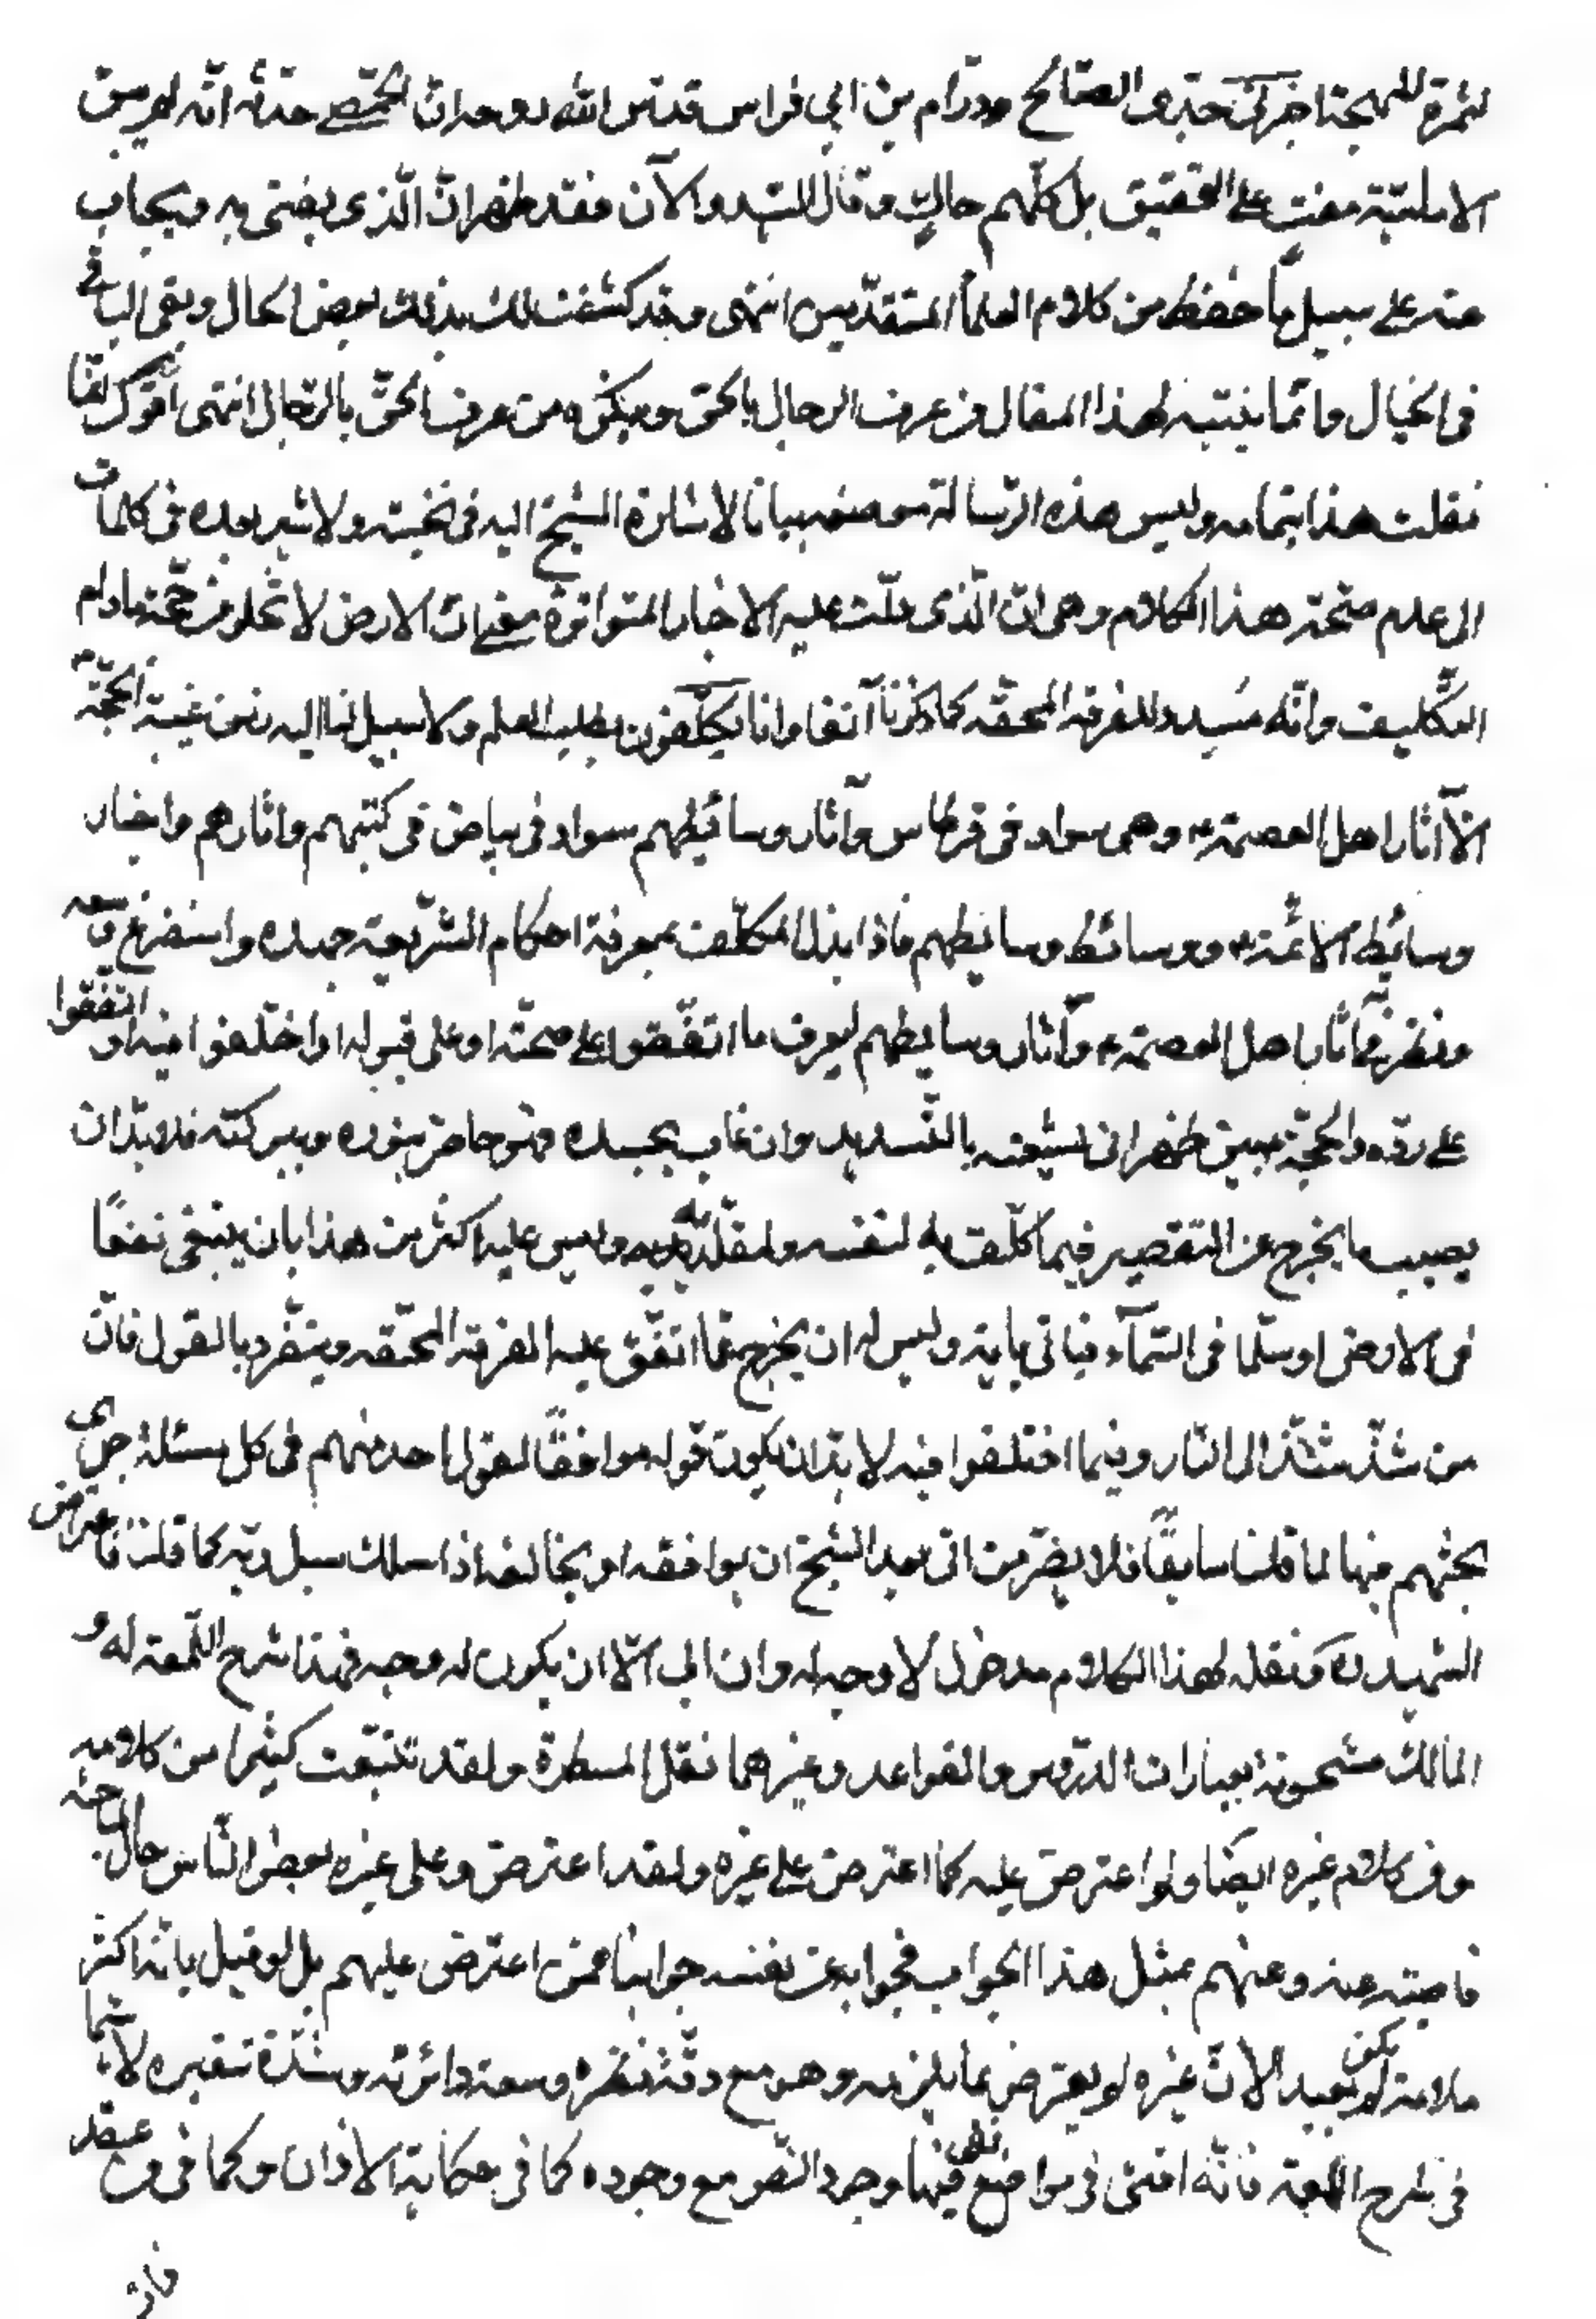 لثمرة المهجة اخبرني جدي الصالح ورّام بن ابي فراس قدّس الله روحه انّ الحمّصي حدّثه انّه لم يبق
الاماميّة مفتٍ على التحقيق بل كلّهم حاكٍ وقال السّيد والآن فقد ظهر انّ الّذي يفتى به ويجاب
عنه على سبيل ما حفظ من كلام العلماء المتقدّمين انتهى وقد كشفت لك بذلك بعض الحال وبقى الباقي
في الخيال وانّما ينتبه لهذا المقال من عرف الرجال بالحق وينكره من عرف الحقّ بالرّجال انتهى اقول انّما
نقلت هذا بتمامه وليس هذه الرّسالة موضعه بيانا لاشارة الشيخ اليه في نخبته ولاشير بعده في كلمات
الى عدم صحّة هذا الكلام وهى انّ الّذي دلّت عليه الاخبار المتواترة معنى انّ الارض لا تخلو من حجّة مادام
التّكليف وانّه مسدد للفرقة المحقّه كما ذكرنا آنفا وانا مكلّفون بطلب العلم ولا سبيل لنا اليه زمن غيبة الحجّة
الّا آثار اهل العصمة وهى سواد في قرطاس وآثار وسائطهم سواد في بياض في كتبهم واثارهم واخبار
وسائط الائمّة ووسائط وسائطهم فاذا بذل المكلّف بمعرفة احكام الشّريعة جهده واستفرغ وسعه
ونظر في آثار اهل العصمة وآثار وسايطهم ليعرف ما اتّفقوا على صحّته او على قبوله او اختلفوا فيه او اتّفقوا
على ردّه والحجّة بين ظهراني شيعته بالتّسديد وان غاب بجسده فهو حاضر بنوره وببركته فلابدّ ان
يصيب ما يخرج عن التّقصير فيما كلّف به لنفسه ولمقلّديه وليس عليه اكثر من هذا بان يبتغى نفقًا
في الارض او سلّما في السّمآء فياتى باية وليس له ان يخرج عمّا اتّفق عليه الفرقة المحقّه ويتفّرد بالقول فانّ
من شذّ شذّ الى النّار وفيما اختلفوا فيه لابدّ ان يكون قوله موافقًا لقول احد منهم في كل مسئلة جرى
بحثهم فيها لما قلنا سابقًا فلا يضرّ من اتى بعد الشّيخ ان يوافقه او يخالفه اذا سلك سبل ربّه كما قلنا فاعتراض
الشهيد ره ونقله لهذا الكلام مدخول لا وجه له وان ابى الّا ان يكون له وجه فهذا شرح اللّمعة له و
المسالك مشحونة بعبارات الدّروس والقواعد وغيرهما نقل المسطرة ولقد تتبّعت كثيرا من كلامه
وفي كلام غيره ايضًا ولو اعترض عليه كما اعترض على غيره ولقد اعترض وعلى غيره بعض النّاس حال المباحثه
فاجبته عنه وعنهم بمثل هذا الجواب فجوابه عن نفسه جوابنا عمّن اعترض عليهم بل لو قيل بانّه اكثر
ملامة لم يكن بعيد الانّ غيره لو يعترض بما يلزمه وهو مع دقّة نظره وسعة دائرته وشدّة تبقيره لا سيّما
في شرح اللمعة فانّه افتى في مواضع نفى فيها وجود النّص مع وجوده كما في حكاية الاذان وكما في وضع
فان